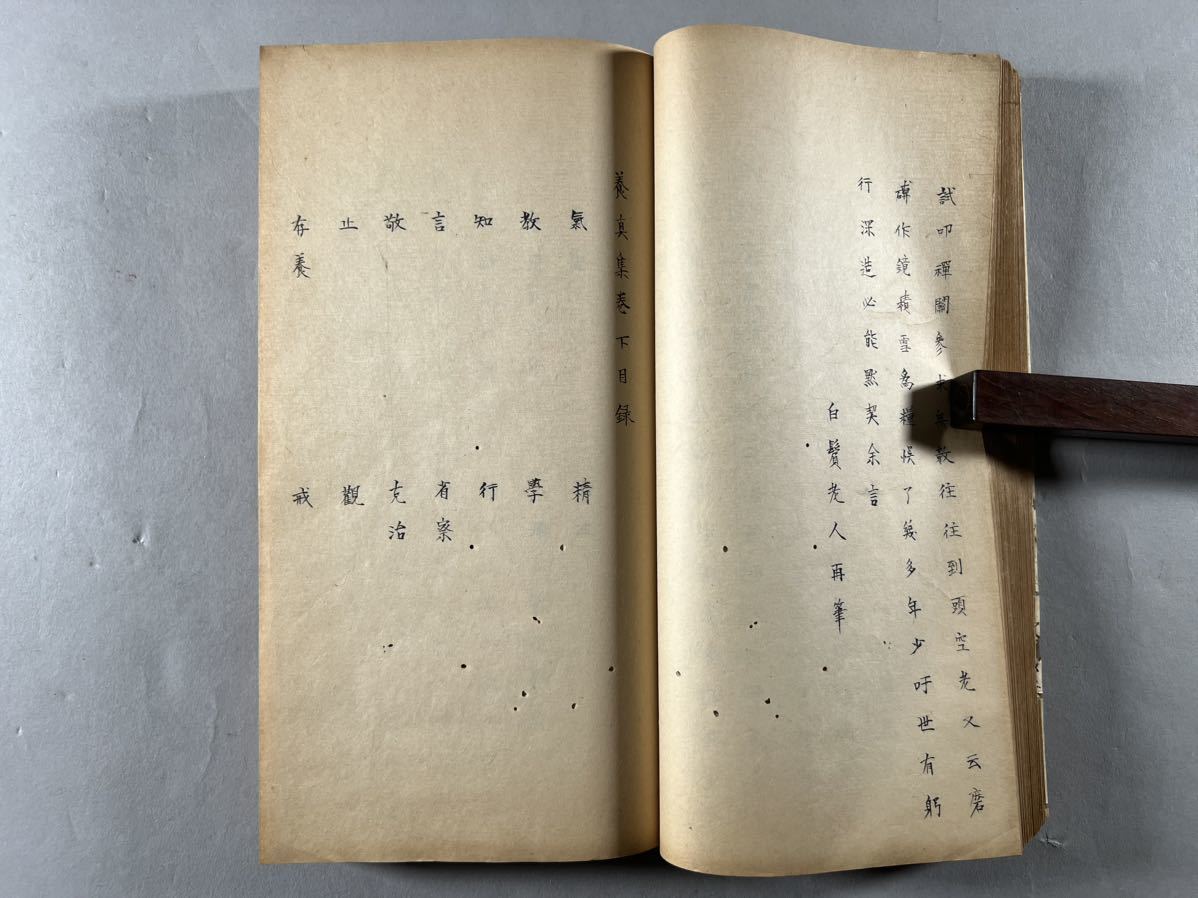 試叩禪關參求無數往往到頭空老又云磨
磚作鏡積雪為糧悞了幾多年少吁世有躬
行深造必能默契余言
白鬢老人再筆
養真集卷下目録
氣 精
教 學
知 行
言 省察
敬 克治
止 觀
存養 戒